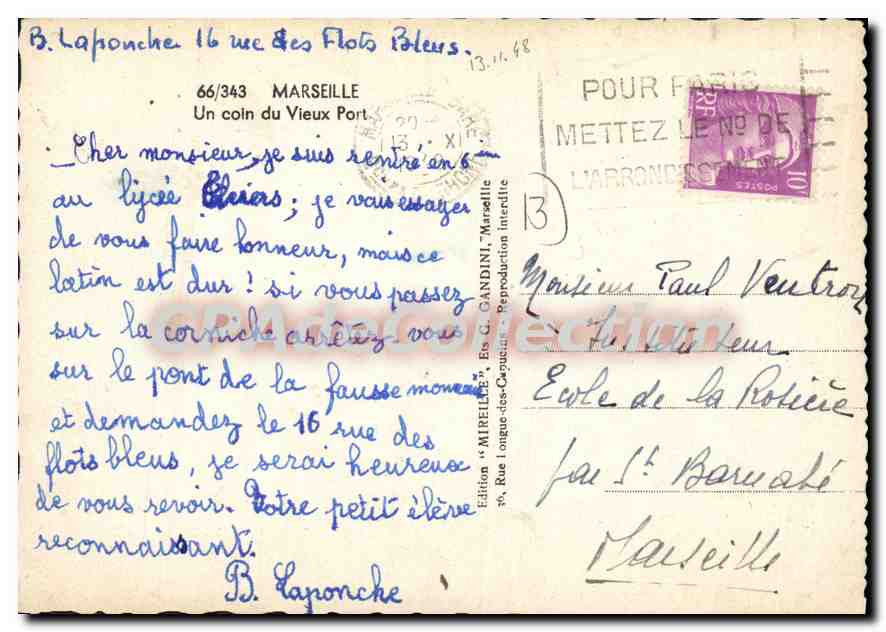 B. Laponche 16 rue des Flots Bleus.
13.11.48
66/343 MARSEILLE
Un coin du Vieux Port
Cher monsieur, je suis rentré en 6ème
au lycée Thiers; je vais essayer
de vous faire honneur, mais ce
latin est dur! si vous passez
sur la corniche arrêtez-vous
sur le pont de la fausse monnaie
et demandez le 16 rue des
flots bleus, je serai heureux
de vous revoir. Votre petit élève
reconnaissant.
B. Laponche
Edition "MIREILLE", Ets G. GANDINI, Marseille
36, Rue Longue-des-Capucins - Reproduction interdite
POUR PARIS
METTEZ LE No DE
L'ARRONDISSEMENT
13 XI
RF
POSTES
10F
13
Monsieur Paul Ventron
Instituteur
Ecole de la Rosière
par St Barnabé
Marseille
CPA de Collection